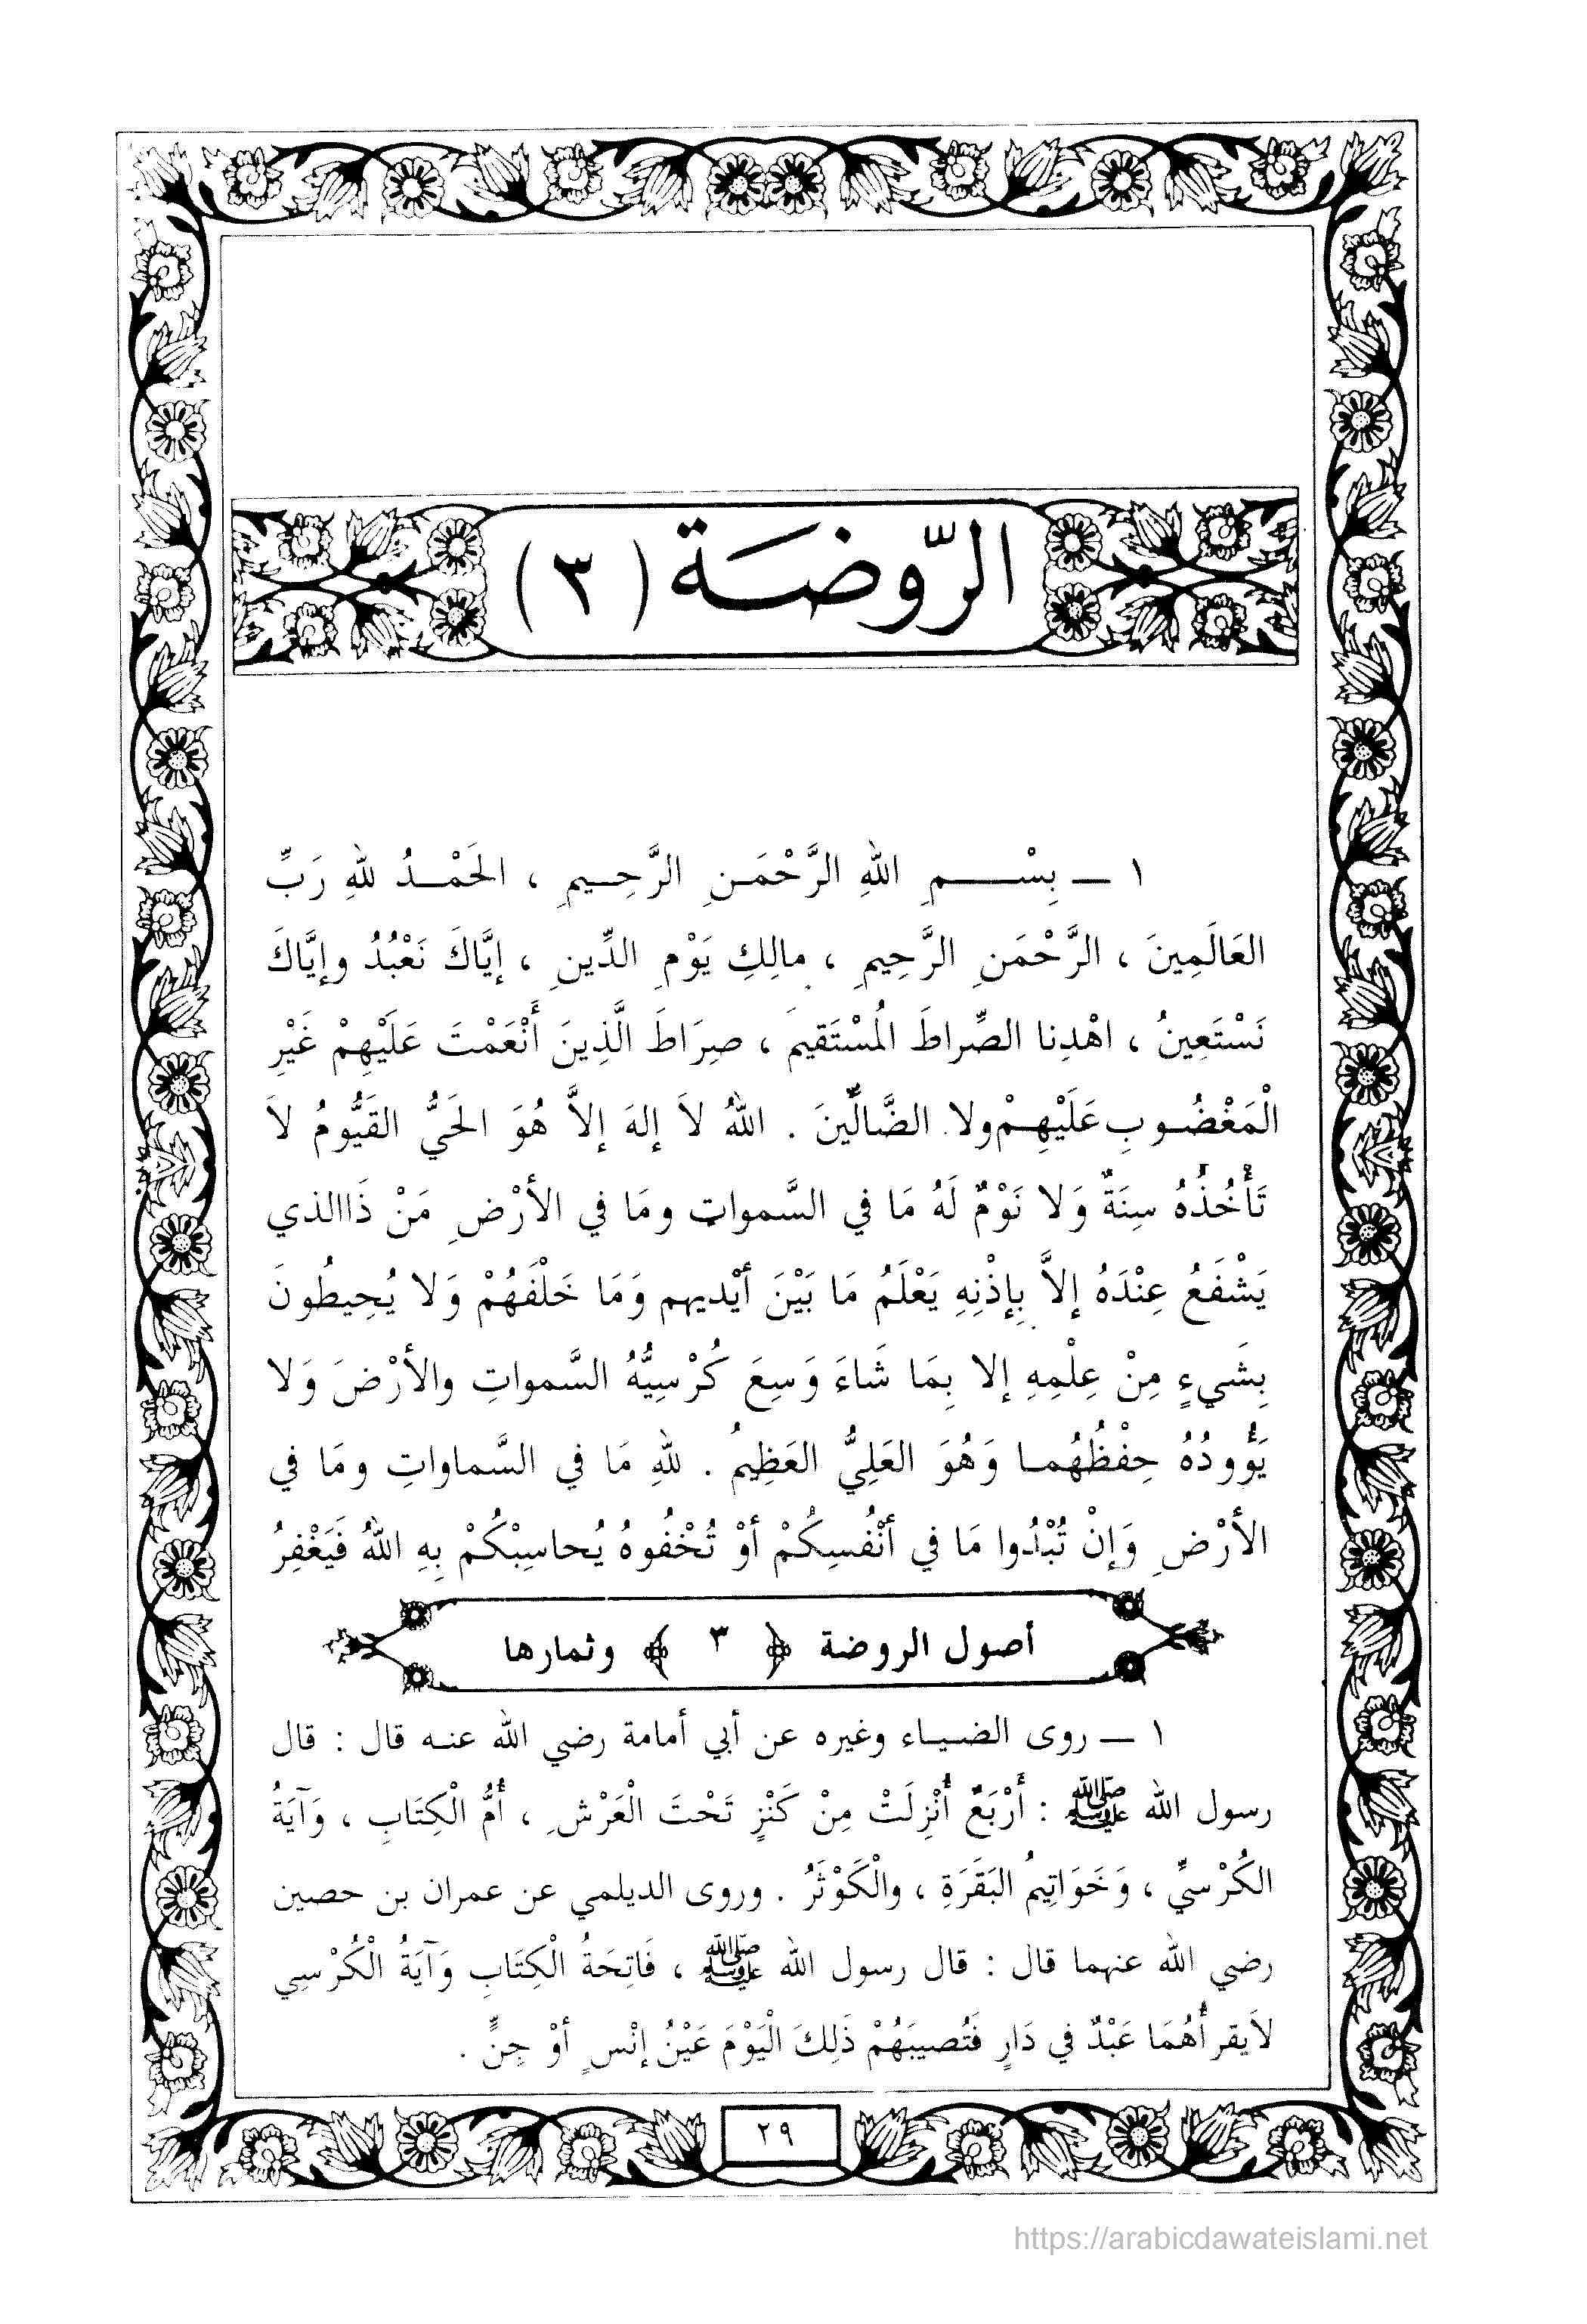 الرّوضَة (٣)
١ ــ بِسْمِ اللهِ الرَّحْمَنِ الرَّحِيمِ ، الحَمْدُ للهِ رَبِّ
العَالَمِينَ ، الرَّحْمَنِ الرَّحِيمِ ، مالِكِ يَوْمِ الدِّينِ ، إيَّاكَ نَعْبُدُ وإيَّاكَ
نَسْتَعِينُ ، اهْدِنا الصِّراطَ المُسْتَقيمَ ، صِرَاطَ الَّذِينَ أَنْعَمْتَ عَلَيْهِمْ غَيْرِ
الْمَغْضُوبِ عَلَيْهِمْ ولا الضَّالِّينَ . اللهُ لاَ إلهَ إلاَّ هُوَ الحَيُّ القَيُّومُ لاَ
تَأْخُذُهُ سِنَةٌ وَلا نَوْمٌ لَهُ مَا في السَّمواتِ ومَا في الأرْضِ مَنْ ذَاالذي
يَشْفَعُ عِنْدَهُ إلاَّ بِإذْنِهِ يَعْلَمُ مَا بَيْنَ أيْديهم وَمَا خَلْفَهُمْ وَلا يُحِيطُونَ
بِشَيءٍ مِنْ عِلْمِهِ إلا بِمَا شَاءَ وَسِعَ كُرْسِيُّهُ السَّمواتِ والأرْضَ وَلا
يَؤُودُهُ حِفْظُهُما وَهُوَ العَلِيُّ العَظِيمُ . للهِ مَا في السَّماواتِ ومَا في
الأرْضِ وَإنْ تُبْدُوا مَا في أنْفُسِكُمْ أوْ تُخْفُوهُ يُحاسِبْكُمْ بِهِ اللهُ فَيَغْفِرُ
أصول الروضة ﴿ ٣ ﴾ وثمارها
١ ــ روى الضياء وغيره عن أبي أمامة رضي الله عنه قال : قال
رسول الله ﷺ : أَرْبَعٌ أُنْزِلَتْ مِنْ كَنْزٍ تَحْتَ الْعَرْشِ ، أُمُّ الْكِتَابِ ، وَآيَةُ
الكُرْسيِّ ، وَخَوَاتِيمُ البَقَرَةِ ، والْكَوْثَرُ . وروى الديلمي عن عمران بن حصين
رضي الله عنهما قال : قال رسول الله ﷺ ، فَاتِحَةُ الْكِتَابِ وَآيَةُ الْكُرْسِي
لاَيقرأُهُمَا عَبْدٌ في دَارٍ فَتُصيبَهُمْ ذَلِكَ الْيَوْمَ عَيْنُ إنْسٍ أوْ جِنٍّ .
٢٩
https://arabicdawateislami.net